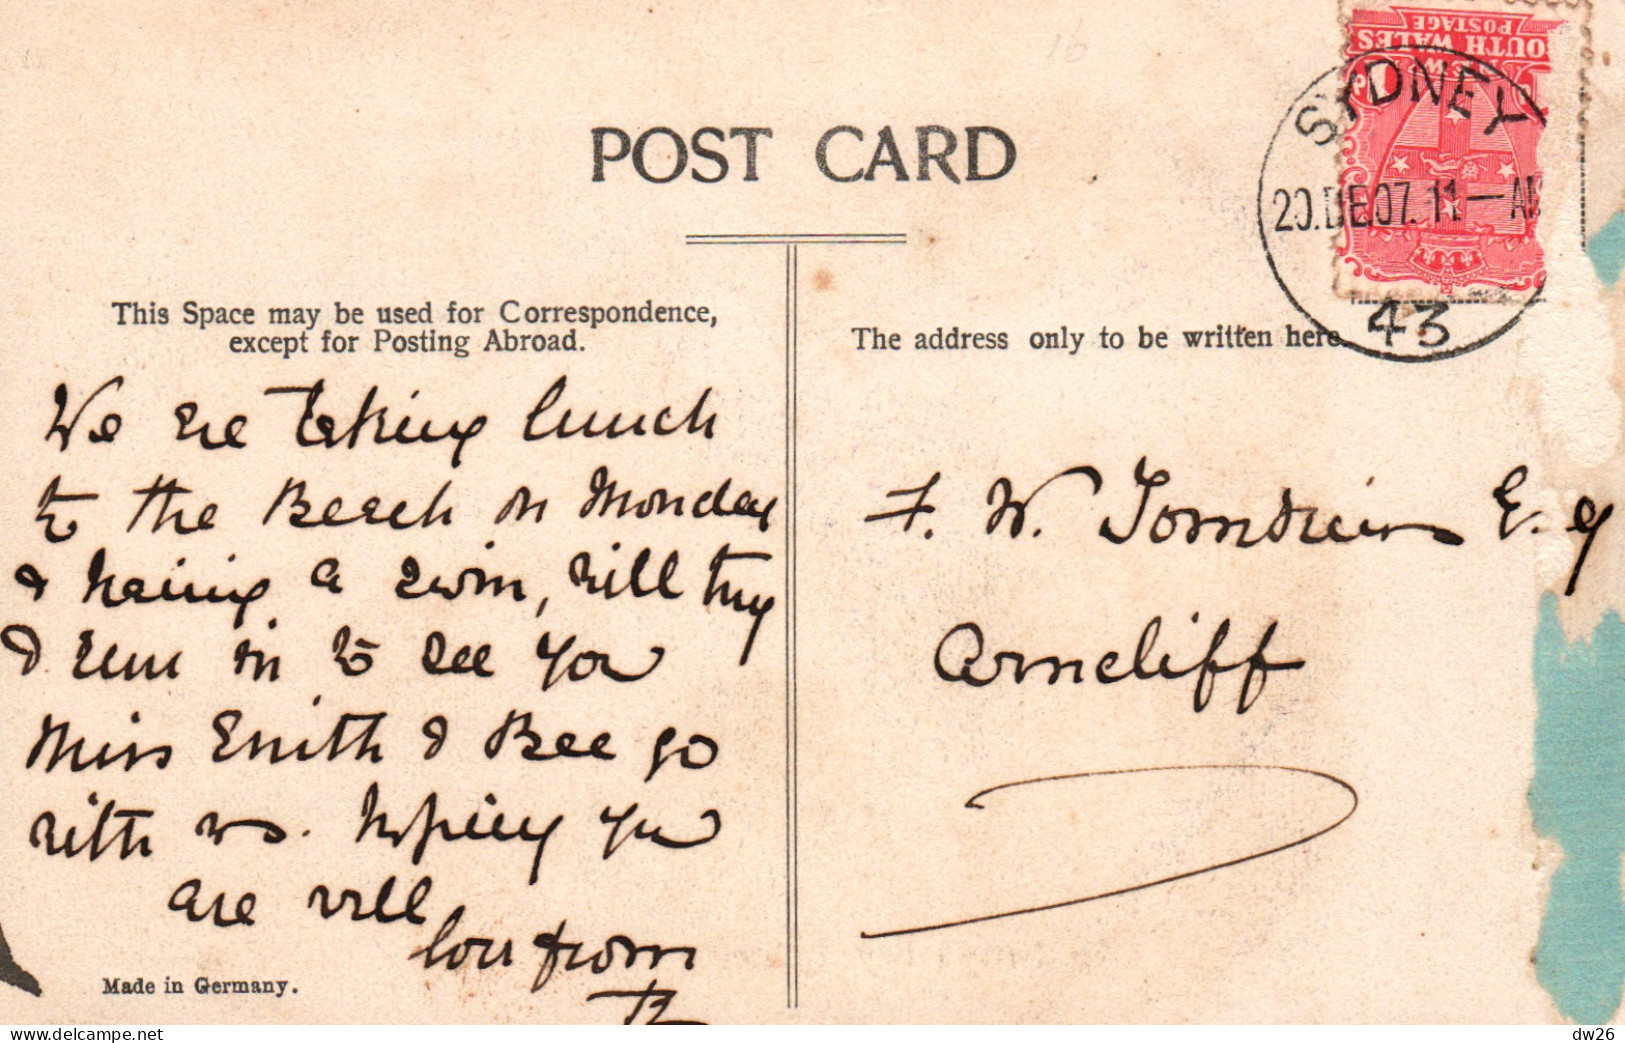 POST CARD
This Space may be used for Correspondence,
except for Posting Abroad.
The address only to be written here.
SOUTH WALES
POSTAGE
SYDNEY
20.DE.07.11—AM
43
We are taking lunch
to the Beach on Monday
& having a swim, will try
& run in to see you
Miss Smith & Bee go
with us. Hoping you
are well
love from
B
F. W. Esq
Arncliff
Made in Germany.
16
dw26